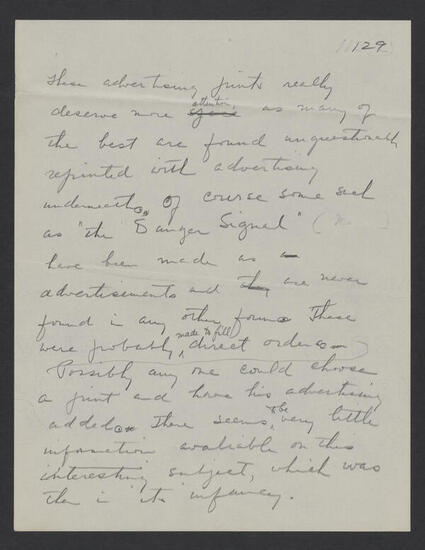 129
These advertising prints really
deserve more attention, as many of
the best are found unquestionably
reprinted with advertising
underneath. Of course some such
as "The Danger Signal" (
have been made as
advertisements and are never
found in any other form. These
were probably made to fill direct orders.)
Possibly any one could choose
a print and have his advertising
added. There seems to be very little
information avaliable on this
interesting subject, which was
then in its infancy.